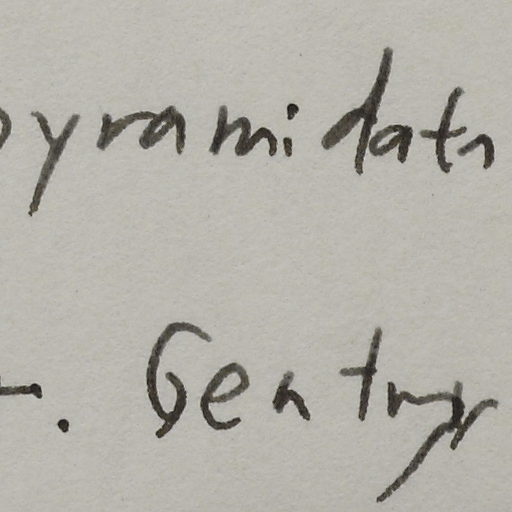 pyramidata
. Gentry